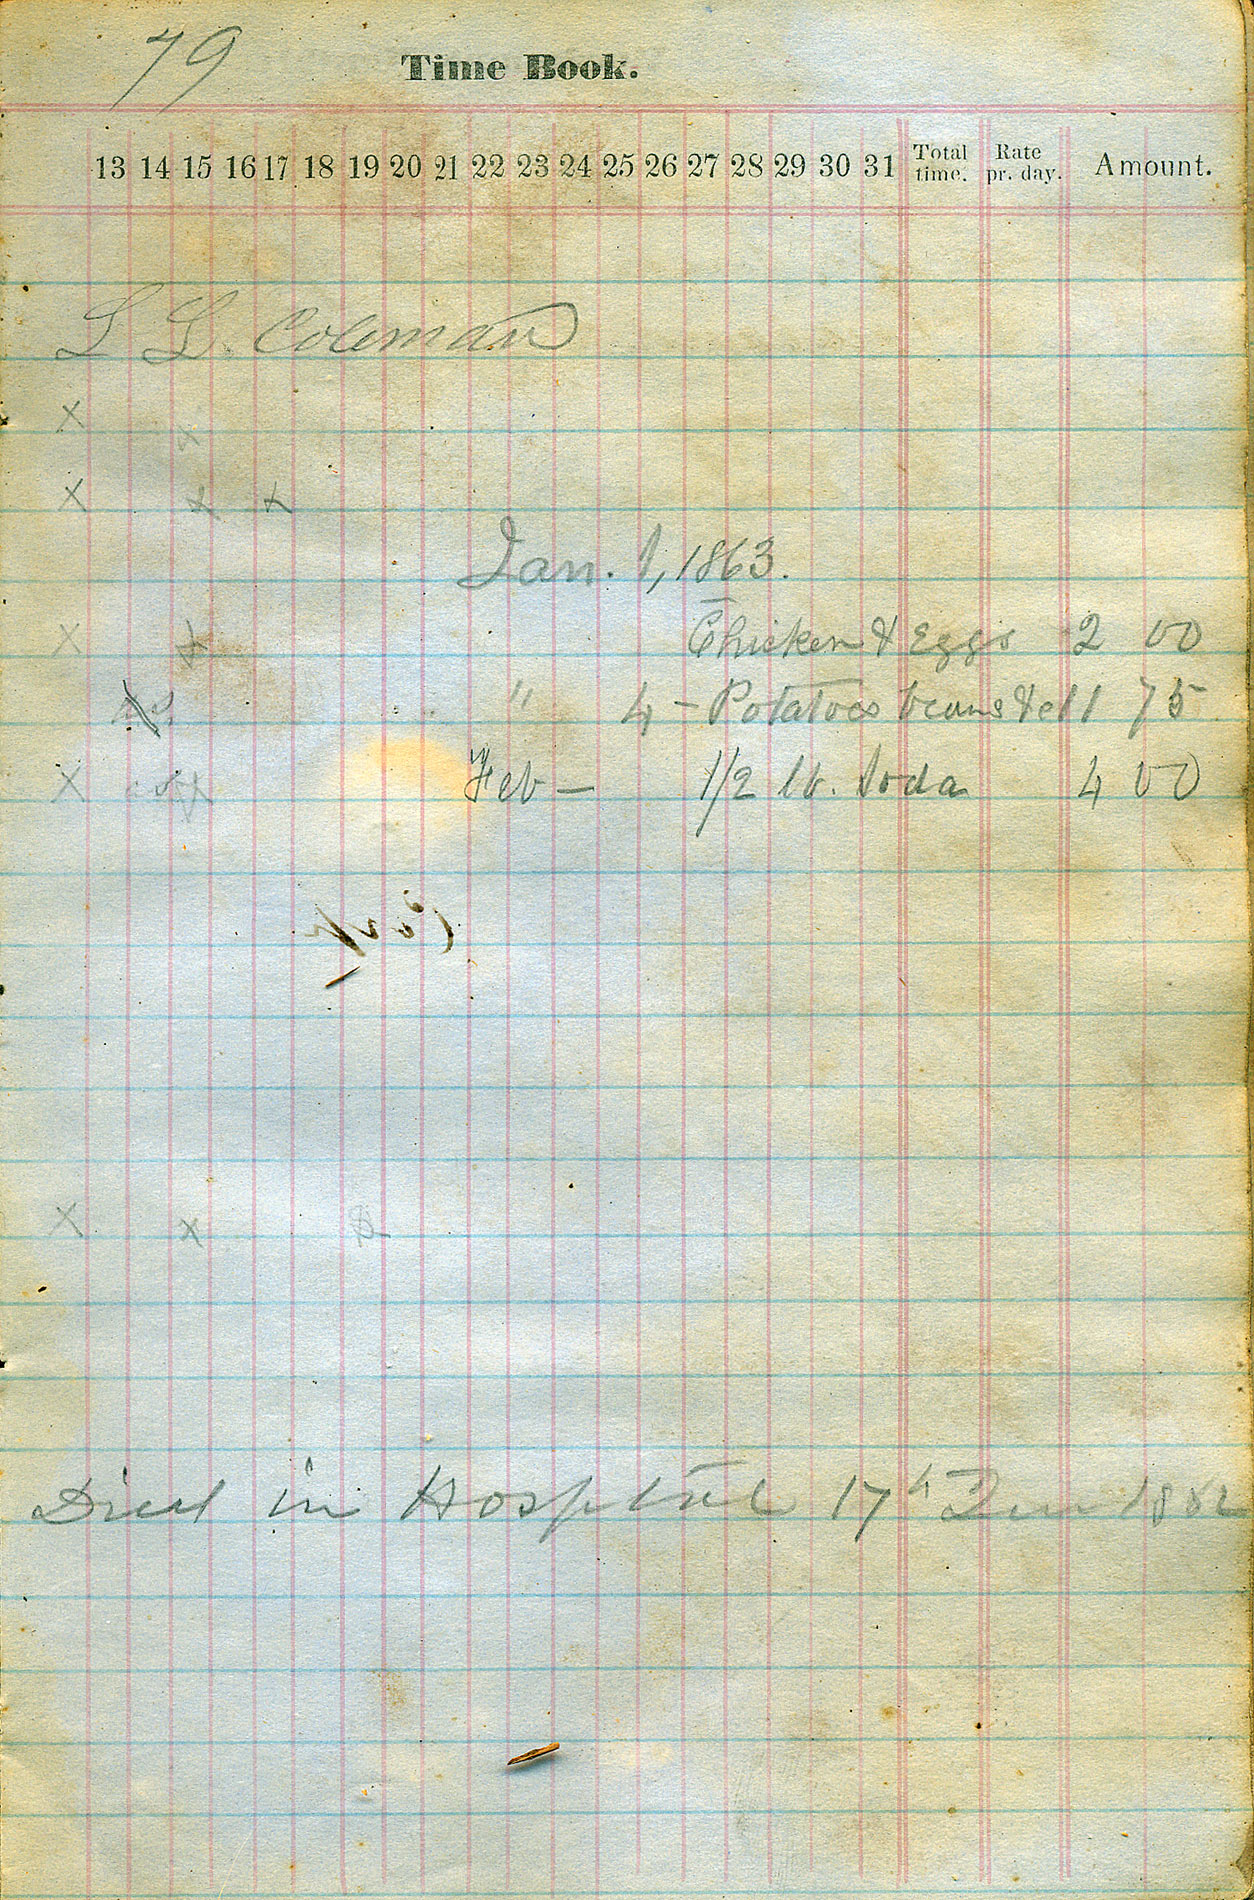 79
Time Book.
13 14 15 16 17 18 19 20 21 22 23 24 25 26 27 28 29 30 31 Total time. Rate pr. day. Amount.
L L. Coleman
x x
x x x
Jan. 1, 1863.
x x Chicken & Eggs 2 00
" 4 - Potatoes beans &c 11 75
x x Feb - 1/2 lb. Soda 4 00
x x
Died in Hospital 17th 1862